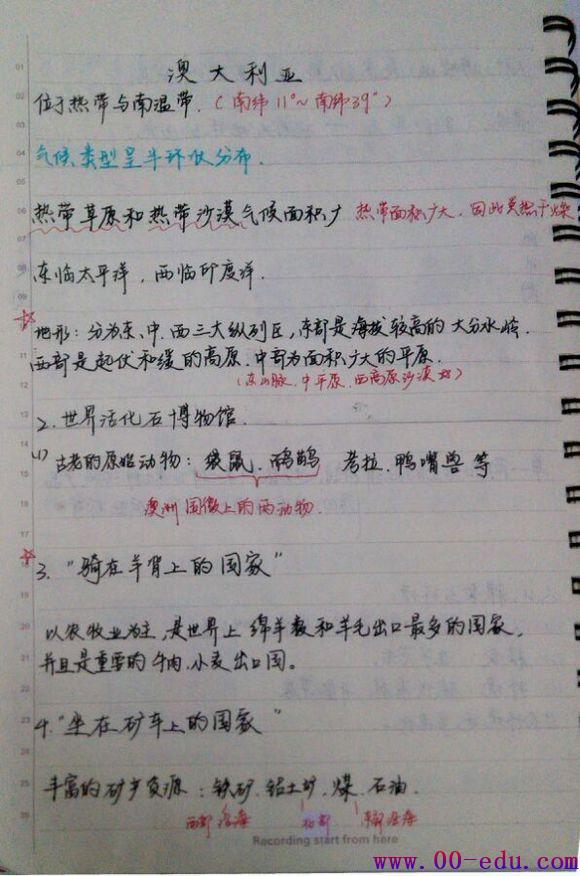 澳大利亚
位于热带与南温带.（南纬11°~南纬39°）
气候类型呈半环状分布.
热带草原和热带沙漠气候面积广 热带面积广大，因此炎热干燥
东临太平洋，西临印度洋.
地形：分为东、中、西三大纵列区，东部是海拔较高的大分水岭.
西部是起伏和缓的高原.中部为面积广大的平原.
（东山脉、中平原、西高原沙漠）
2.世界活化石博物馆.
(1) 古老的原始动物：袋鼠、鸸鹋 考拉、鸭嘴兽等
澳洲国徽上的两动物.
3. "骑在羊背上的国家"
以农牧业为主，是世界上绵羊数和羊毛出口最多的国家，
并且是重要的牛肉、小麦出口国。
4."坐在矿车上的国家"
丰富的矿产资源：铁矿、铝土矿、煤、石油.
西部沿海 北部 东部沿海
Recording start from here
www.00-edu.com